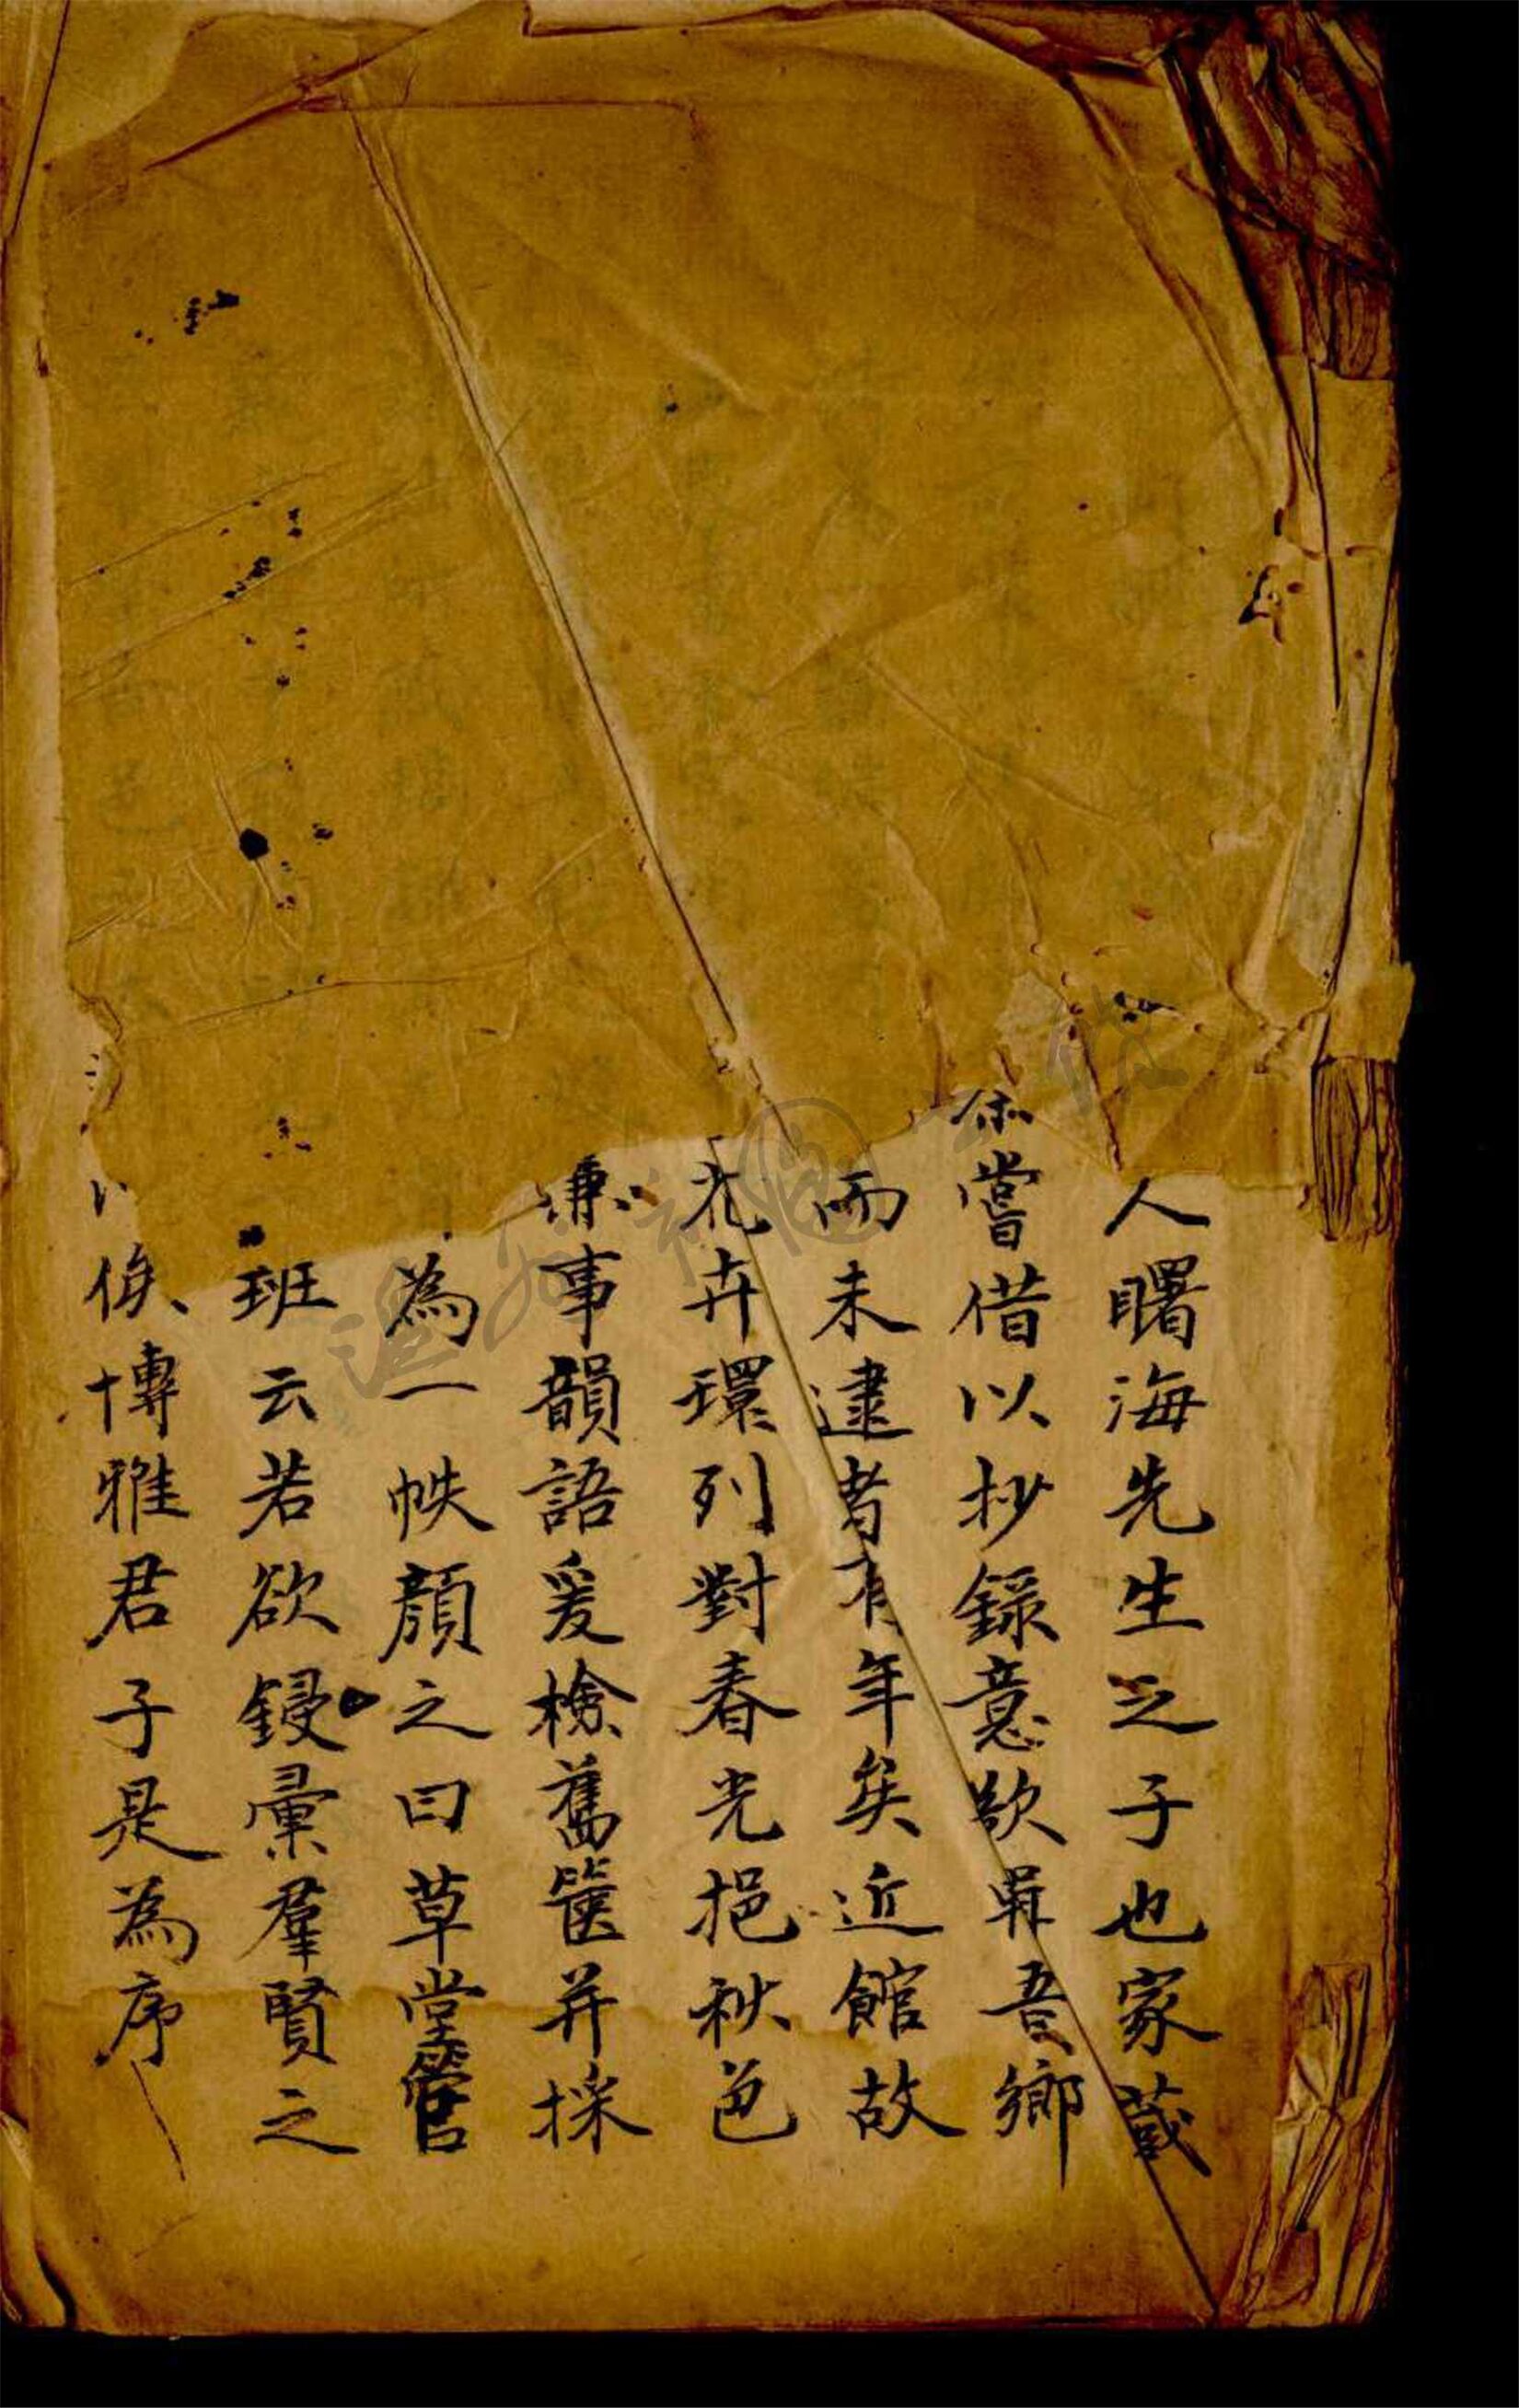 人曙海先生之子也家藏
嘗借以抄錄意欲再吾鄉
而未逮者有年矣近館故
花卉環列對春光挹秋色
兼事韻語爰檢舊篋并採
為一帙顏之曰草堂管
班云若欲鋟彙羣賢之
俟博雅君子是為序